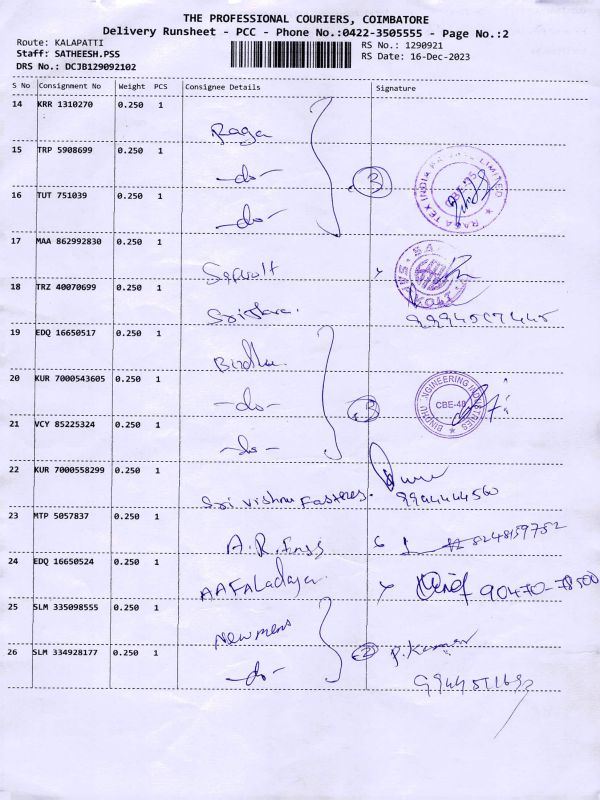 THE PROFESSIONAL COURIERS, COIMBATORE
Delivery Runsheet - PCC - Phone No.:0422-3505555 - Page No.:2
Route: KALAPATTI
RS No.: 1290921
Staff: SATHEESH.PSS
RS Date: 16-Dec-2023
DRS No.: DCJB129092102
S No Consignment No Weight PCS Consignee Details Signature
14 KRR 1310270 0.250 1
Raga
15 TRP 5908699 0.250 1
-do- 3
RAGA TEX INDIA PRIVATE LIMITED
CBE-
16 TUT 751039 0.250 1
-do-
17 MAA 862992830 0.250 1
18 TRZ 40070699 0.250 1
19 EDQ 16650517 0.250 1
Bindhu
20 KUR 7000543605 0.250 1
-do- 3
BINDHU ENGINEERING INDUSTRIES
CBE-48
21 VCY 85225324 0.250 1
-do-
22 KUR 7000558299 0.250 1
Sri Vishnu Fasteners. 9944444560
23 MTP 5057837 0.250 1
A.R. 8248159752
24 EDQ 16650524 0.250 1
90470-78500
25 SLM 335098555 0.250 1
Newmens
26 SLM 334928177 0.250 1
-do- 2 P. Kumar